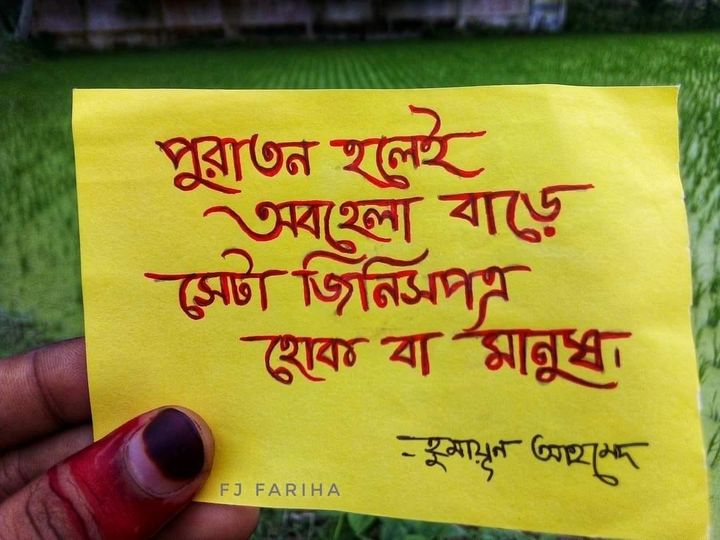 পুরাতন হলেই
অবহেলা বাড়ে
সেটা জিনিসপত্র
হোক বা মানুষ।
-হুমায়ূন আহমেদ
FJ FARIHA